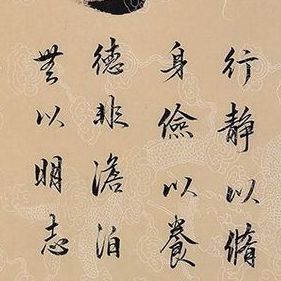 行静以脩
身儉以養
德非澹泊
無以明志